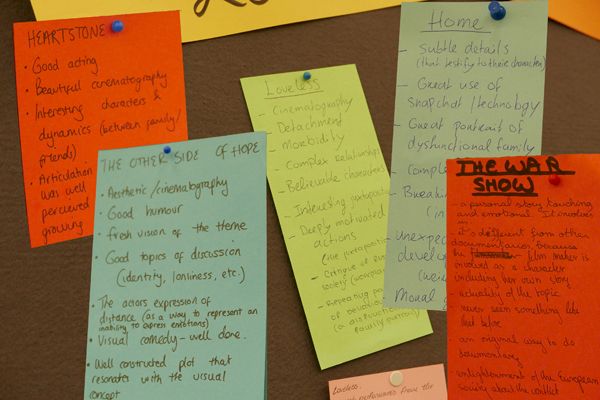 HEARTSTONE
• Good acting
• Beautiful cinematography
• Interesting characters &
dynamics (between family/
friends)
• Articulation
was well
perceived
growing
THE OTHER SIDE OF HOPE
• Aesthetic/cinematography
• Good humour
• fresh vision of the theme
• Good topics of discussion
(identity, lonliness, etc.)
• The actors expression of
distance (as a way to represent an
inability to express emotions)
• Visual comedy - well done.
• Well constructed plot that
resonates with the visual
concept
Loveless
- Cinematography
- Detachment
- Morbidity
- Complex relationship
- Believable characters
- Interesting
- Deeply motivated
actions
- Critique of
society
- Repeating
of
Home
- Subtle details
(that testify to their characters)
- Great use of
snapchat/technology
- Great portrait of
dysfunctional family
- Comple
- Break
(in
- unexpe
develo
Moral
THE WAR
SHOW
- a personal story touching
and emotional. It involves
- it's different from other
documentaries, because
the film maker is
involved as a character
including her own story
- actuality of the topic
- never seen something like
that before
- an original way to do
documentary
- enlightenment of the European
society about the conflict
Loveless.
performances from the